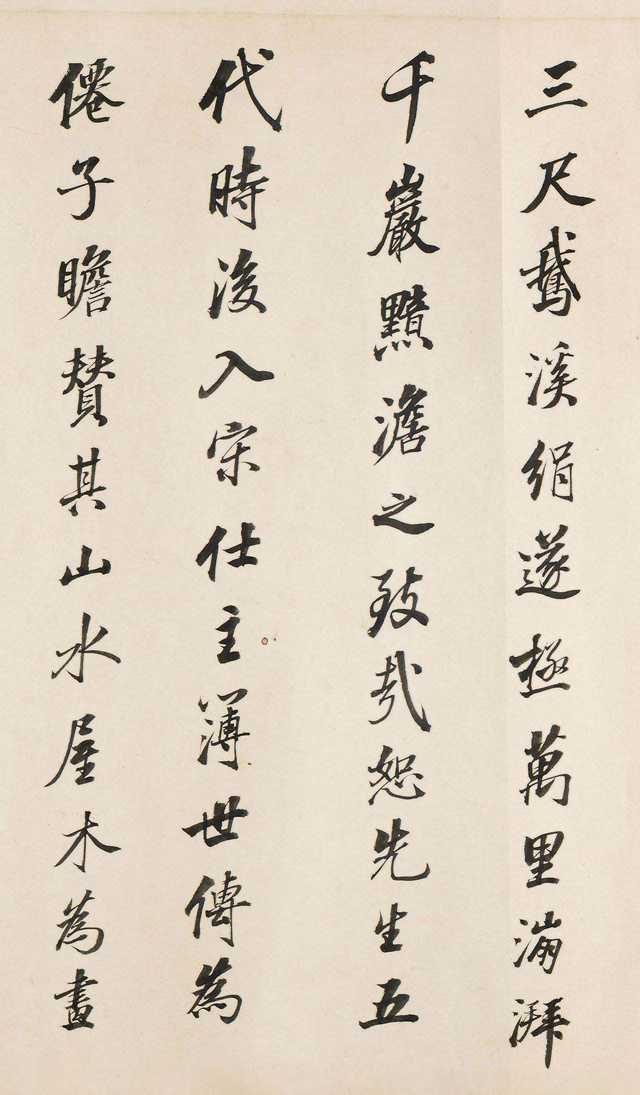 三尺鵝溪絹遂極萬里漰湃
千巖黯澹之致哉恕先生五
代時後入宋仕主簿世傳為
僊子瞻贊其山水屋木為畫